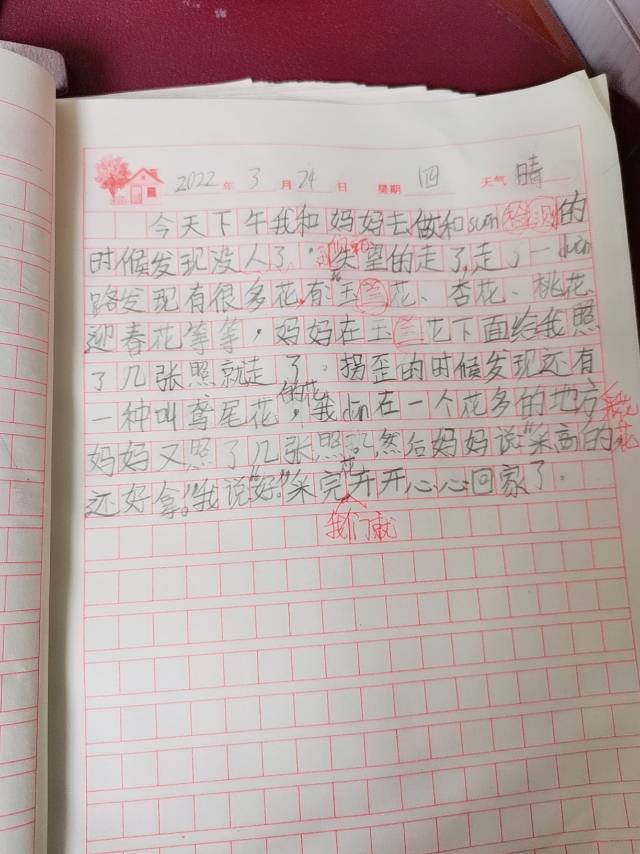 2022 年 3 月 24 日 星期 四 天气 晴
今天下午我和妈妈去做和suan检测的
时候发现没人了。失望的走了,走了一duan
路发现有很多花,有:玉兰花、杏花、桃花、
迎春花等等,妈妈在玉兰花下面给我照
了几张照就走了。拐歪的时候发现还有
一种叫鸢尾花的花,我dūn在一个花多的地方
妈妈又照了几张照,然后妈妈说"采高的花
还好拿。"我说"好。"采完花开开心心回家了。
我们就